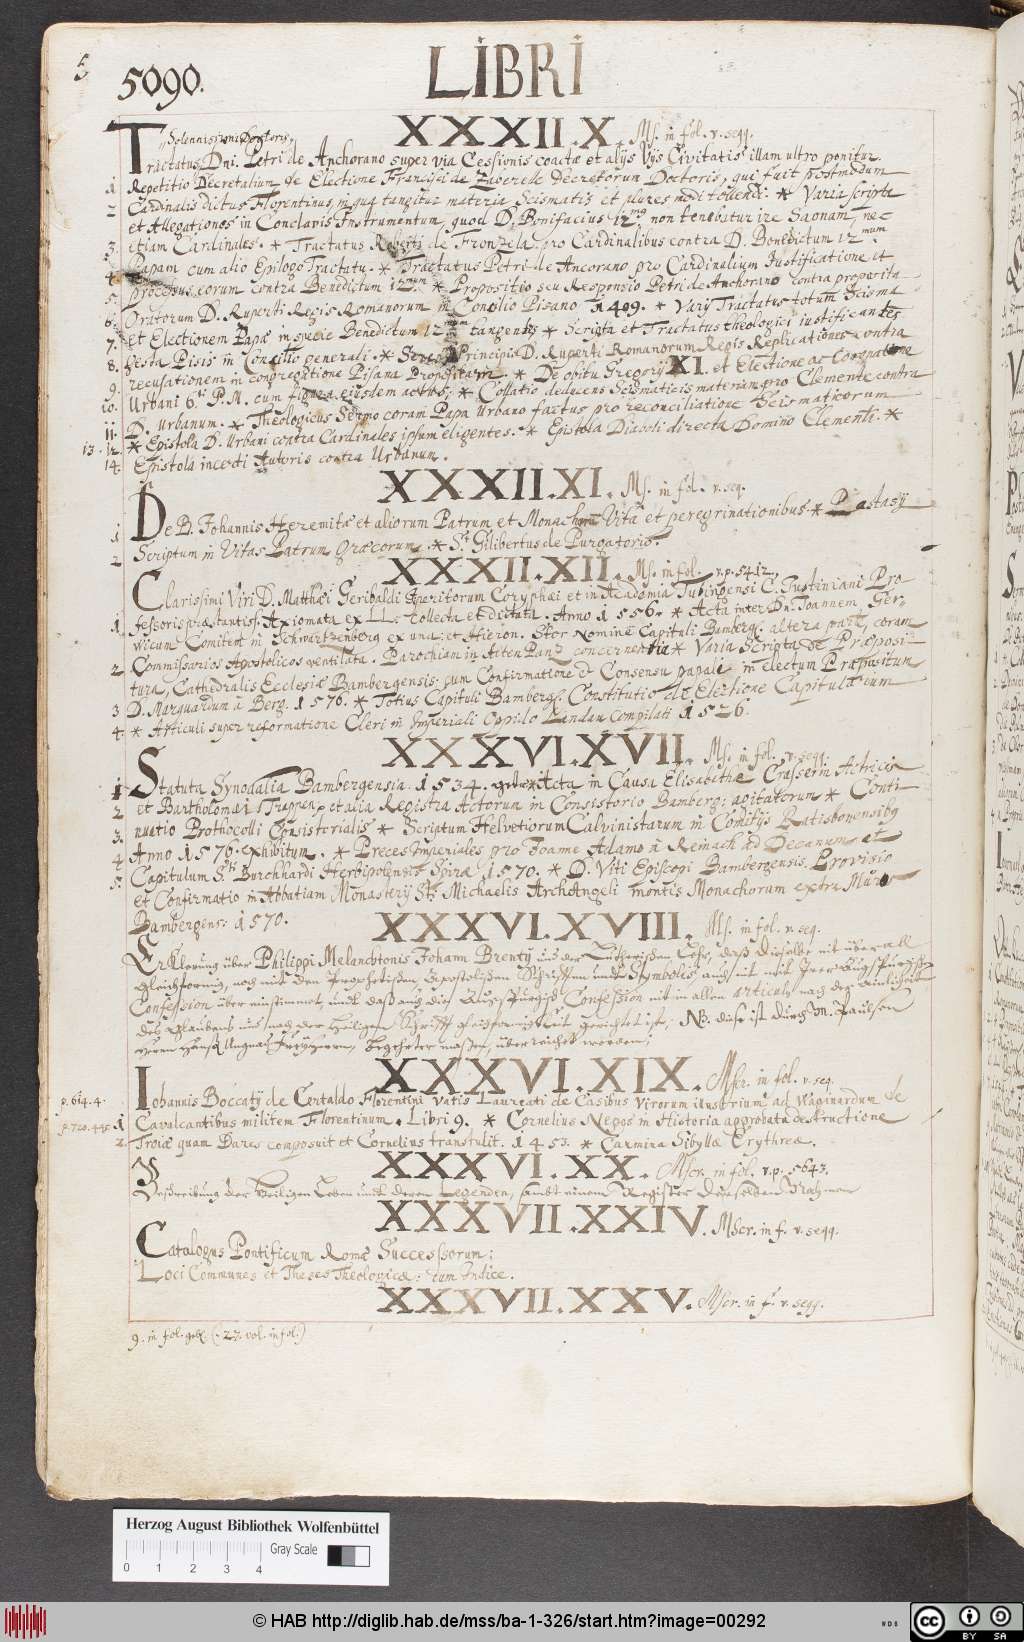 5
5090.
LIBRI
XXXII.X. Ms. in fol. v. seqq.
Solennissimi Doctoris
Tractatus Dni. Petri de Anchorano super via Cessionis coactæ et alijs Vijs Civitatis illam ultro ponitur.
1 Repetitio Decretalium de Electione Francisci de Zaberelle Decretorum Doctoris, qui fuit postmodum
2 Cardinalis dictus Florentinus, in qua tangitur materia Scismatis et plures modi tollendi. * Varia scripta
et Allegationes in Conclavis Instrumentum, quod D. Bonifacius 12mus non tenebatur ire Saonam, nec
3. etiam Cardinales. * Tractatus Roberti de Fronzela pro Cardinalibus contra D. Benedictum 12mum
4. Papam cum alio Epilogo Tractatu. * Tractatus Petri de Ancorano pro Cardinalium Justificatione et
5. processus eorum contra Benedictum 12mum * Propositio seu Responsio Petri de Anchorano contra proposita
6. Oratorum D. Ruperti Regis Romanorum in Concilio Pisano 1409. * Varij Tractatus totum Scisma
7. et Electionem Papæ in specie Benedictum 12mum tangentes * Scripta et Tractatus theologici iustificantes
8. gesta Pisis in Concilio generali. * Principis D. Ruperti Romanorum Regis Replicationes contra
9. recusationem in congregatione Pisana propositam. * De obitu Gregorij XI. et Electione ac Coronatione
10. Urbani 6ti P.M. cum figura eiusdem actus; * Collatio deducens Scismaticis materiam pro Clemente contra
11. D. Urbanum. * Theologicus Sermo coram Papa Urbano factus pro reconciliatione Scismaticorum
13. 12. * Epistola D. Urbani contra Cardinales ipsum eligentes. * Epistola Diaboli directa Domino Clementi. *
14. Epistola incerti Autoris contra Urbanum.
XXXII.XI. Ms. in fol. v. seq.
1 De D. Johannis Heremitæ et aliorum Patrum et Monachorum Vita et peregrinationibus * Postasij
2 Scriptum in Vitas Patrum Græcorum. * St. Gilibertus de Purgatorio.
XXXII.XII. Ms. in fol. v. p. 5412.
Clarissimi Viri D. Matthæi Geribaldi Iperitorum Coryphæi et in Academia Tubingensi C. Justiniani Pro-
1. fessoris præstantiss: Axiomata ex LL: collecta et dictata. Anno 1556. * Acta inter Dn. Joannem Ger-
wicum Comitem in Schwartzenberg ex una: et Hieron. Stor Nomine Capituli Bamberg: altera parte, coram
2 Commissarios Apostolicos ventilata. Parochiam in Alten Panz concernentia * Varia Scripta de Præposi-
tura, Cathedralis Ecclesiæ Bambergensis: cum Confirmatione et Consensu papali in electum Præpositum
3 D. Marquardum à Berg. 1576. * Totius Capituli Bamberg: Constitutio de Electione Capitulæ eum
4. * Articuli super reformatione Cleri in Imperiali Oppido Landau compilati 1526.
XXXVI.XVII. Ms. in fol. v. seqq.
1 Statuta Synodalia Bambergensia. 1534. * Acta in Causa Elisabethæ Crasserin Actricis
2 et Bartholomæi Trappen et alia Registra Actorum in Consistorio Bamberg: agitatorum * Conti-
3. nuatio Prothocolli Consistorialis * Scriptum Helvetiorum Calvinistarum in Comitijs Ratisbonensibus
4 Anno 1576. exhibitum. * Preces Imperiales pro Joanne Adamo à Reinach ad Decanum et
5. Capitulum Sti Burchhardi Herbipolensis Spiræ 1570. * D. Viti Episcopi Bambergensis. Provisio
et Confirmatio in Abbatiam Monasterij Sti Michaelis Archangeli montis Monachorum extra Muros
Bambergens: 1570.
XXXVI.XVIII. Ms. in fol. v. seq.
Erklerung über Philippi Melanchtonis Johann Brentij und der Lutherischen Lehr, daß dieselbe nit überall
gleichformig, noch mit den Prophetischen Apostolischen Schrifften undt Symbolis, auch nit mit Irer Augspurgischen
Confession über einstimmet, undt daß auch die Augspurgisch Confession nit in allen articuln nach der Einigkeit
des Glaubens und nach der Heiligen Schrifft gleichformigkeit gerichtet ist. NB. diese ist durch M. Paulsen
Herrn Hanß Ungnad Freyherrn, begehrter massen, überreichet worden.
XXXVI.XIX. Mscr. in fol. v. seq.
p. 614. 4. Johannis Boccatij de Certaldo Florentini Vatis Laureati de Casibus Virorum illustrium ad Maginardum de
p. 720. 445 1 Cavalcantibus militem Florentinum. Libri 9. * Cornelius Nepos in Historia approbata destructione
2 Troiæ quam Dares composuit et Cornelius transtulit. 1453. * Carmina Sibyllæ Erythreæ.
XXXVI.XX. Mscr. in fol. v. p. 5643.
Beschreibung der Heiligen Leben undt deren Legenden, sambt einem Register derselben Nahmen
XXXVII.XXIV. Mscr. in f. v. seqq.
Catalogus Pontificum Romæ Successorum:
Loci Communes et Theses Theologicæ: cum Indice.
XXXVII.XXV. Mscr. in f. v. seqq.
9. in fol. geb. (: 27. vol. in fol.)
Herzog August Bibliothek Wolfenbüttel
Gray Scale
0 1 2 3 4
© HAB http://diglib.hab.de/mss/ba-1-326/start.htm?image=00292
cc BY SA